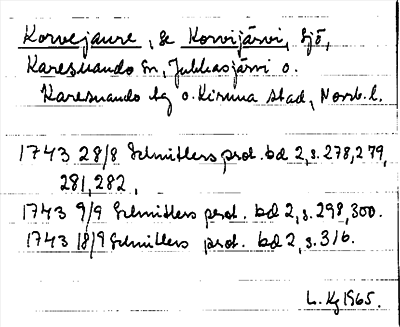 Korvejaure, se Korvijärvi, sjö,
Karesuando sn, Jukkasjärvi o.
Karesuando tg o. Kiruna stad, Norrb. l.
1743 28/8 Schnitlers prot. bd 2, s. 278, 279,
281, 282.
1743 9/9 Schnitlers prot. bd 2, s. 298, 300.
1743 18/9 Schnitlers prot. bd 2, s. 316.
L. Kg 1965.